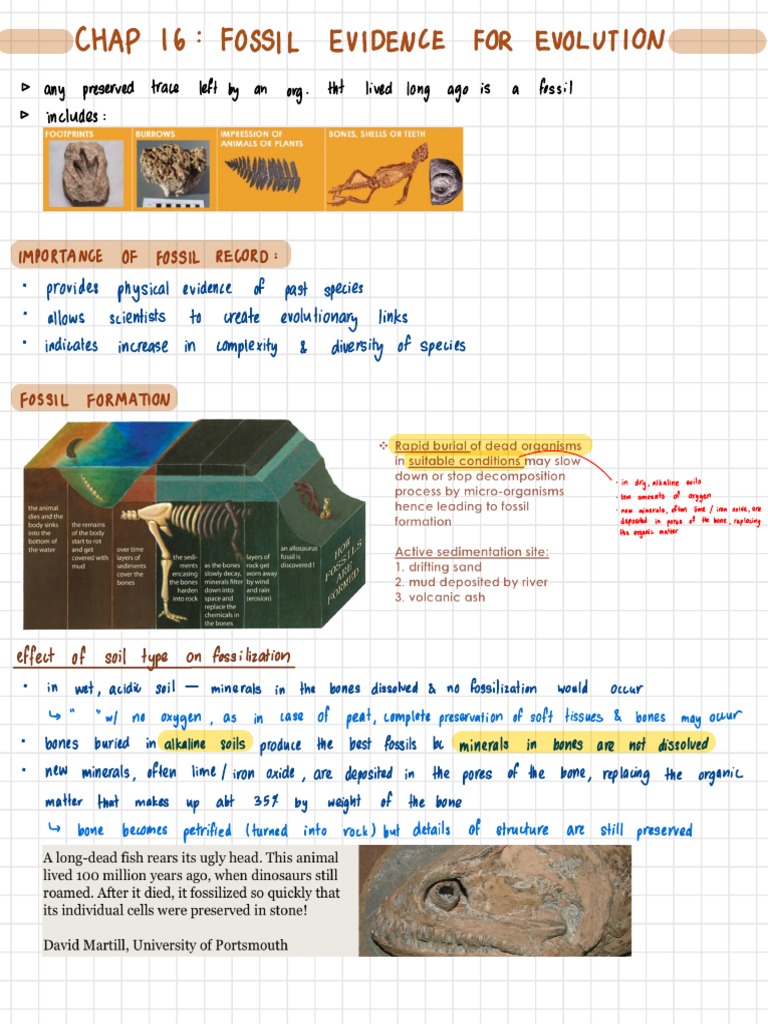 CHAP 16: FOSSIL EVIDENCE FOR EVOLUTION
any preserved trace left by an org. tht lived long ago is a fossil
includes:
FOOTPRINTS
BURROWS
IMPRESSION OF
ANIMALS OR PLANTS
BONES, SHELLS OR TEETH
IMPORTANCE OF FOSSIL RECORD:
• provides physical evidence of past species
• allows scientists to create evolutionary links
• indicates increase in complexity & diversity of species
FOSSIL FORMATION
the animal
dies and the
body sinks
into the
bottom of
the water
the remains
of the body
start to rot
and get
covered with
mud
over time
layers of
sediments
cover the
bones
the sedi-
ments
encasing
the bones
harden
into rock
as the bones
slowly decay,
minerals filter
down into
space and
replace the
chemicals in
the bones
layers of
rock get
worn away
by wind
and rain
(erosion)
an allosaurus
fossil is
discovered!
HOW
FOSSILS
ARE
FORMED
❖ Rapid burial of dead organisms
in suitable conditions may slow
down or stop decomposition
process by micro-organisms
hence leading to fossil
formation
Active sedimentation site:
1. drifting sand
2. mud deposited by river
3. volcanic ash
• in dry, alkaline soils
• low amounts of oxygen
• new minerals, often lime / iron oxide, are
deposited in pores of the bone, replacing
the organic matter
effect of soil type on fossilization
• in wet, acidic soil — minerals in the bones dissolved & no fossilization would occur
↳ " " w/ no oxygen, as in case of peat, complete preservation of soft tissues & bones may occur
• bones buried in alkaline soils produce the best fossils bc minerals in bones are not dissolved
• new minerals, often lime / iron oxide, are deposited in the pores of the bone, replacing the organic
matter that makes up abt 35% by weight of the bone
↳ bone becomes petrified (turned into rock) but details of structure are still preserved
A long-dead fish rears its ugly head. This animal
lived 100 million years ago, when dinosaurs still
roamed. After it died, it fossilized so quickly that
its individual cells were preserved in stone!
David Martill, University of Portsmouth